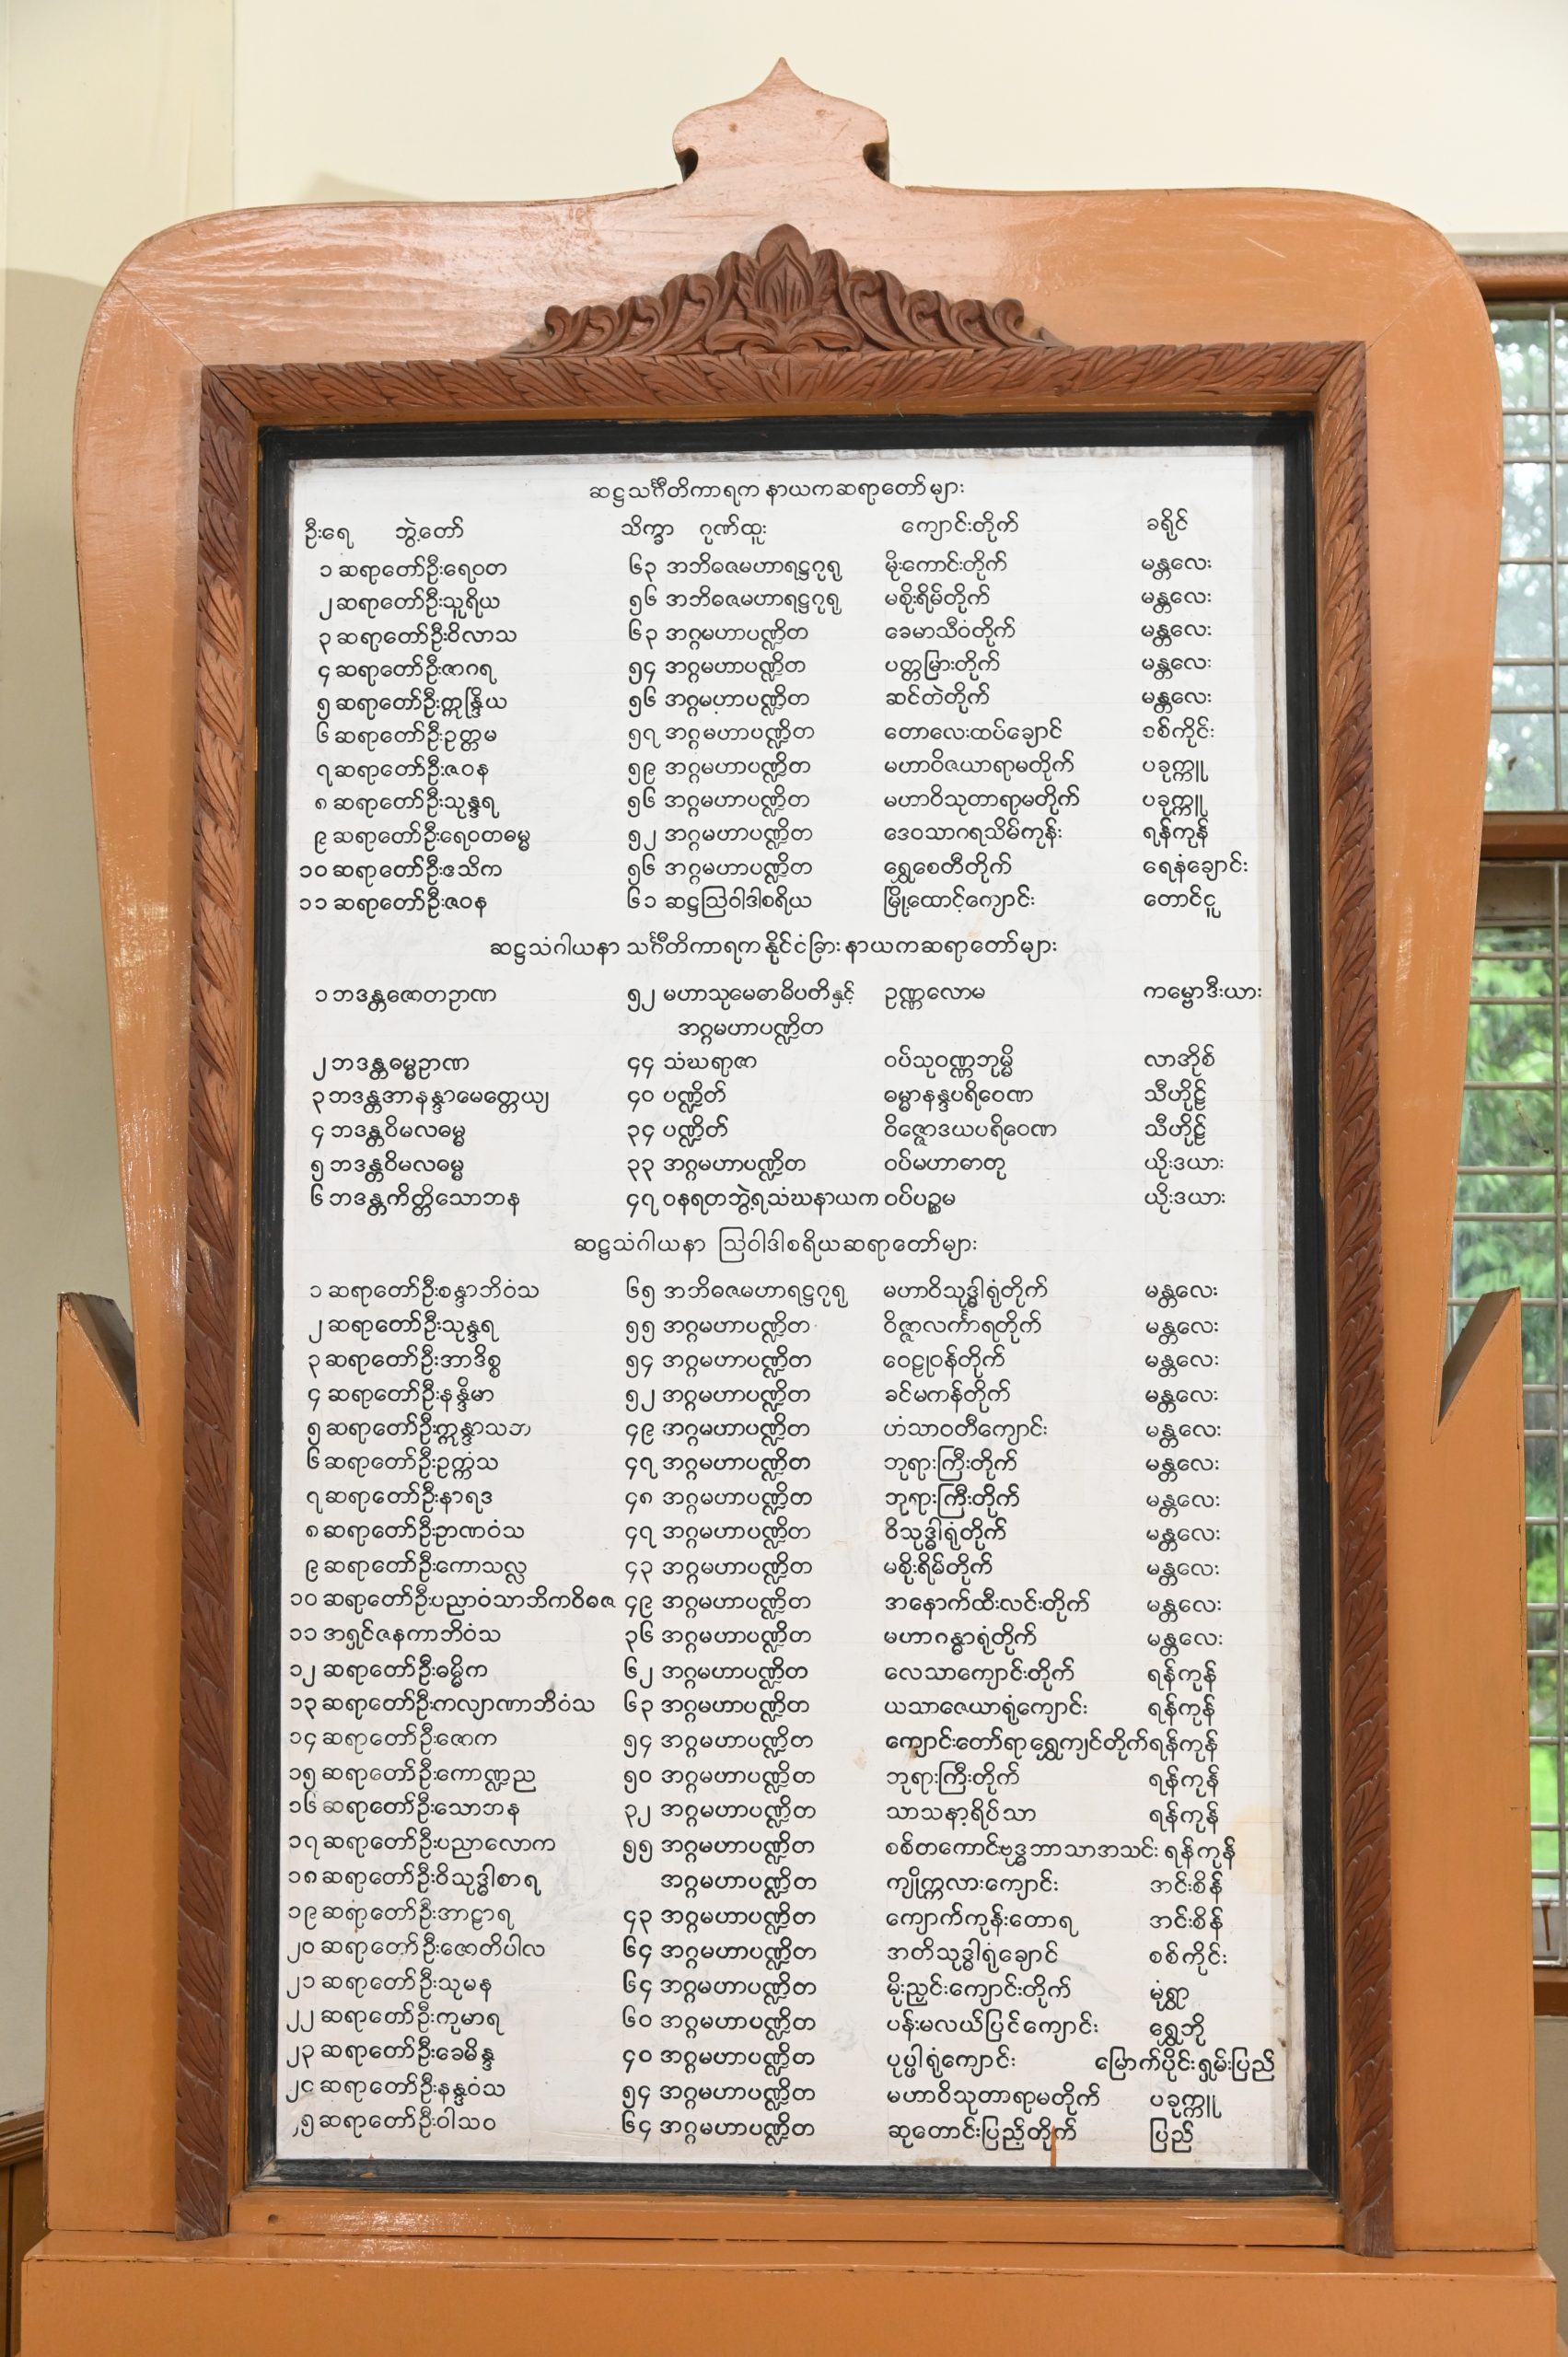 ဆဋ္ဌသင်္ဂီတိကာရက နာယကဆရာတော်များ
ဦးရေ ဘွဲ့တော် သိက္ခာ ဂုဏ်ထူး ကျောင်းတိုက် ခရိုင်
၁ ဆရာတော်ဦးရေဝတ ၆၃ အဘိဓဇမဟာရဋ္ဌဂုရု မိုးကောင်းတိုက် မန္တလေး
၂ ဆရာတော်ဦးသူရိယ ၅၆ အဘိဓဇမဟာရဋ္ဌဂုရု မစိုးရိမ်တိုက် မန္တလေး
၃ ဆရာတော်ဦးဝိလာသ ၆၃ အဂ္ဂမဟာပဏ္ဍိတ ခေမာသီဝံတိုက် မန္တလေး
၄ ဆရာတော်ဦးဇာဂရ ၅၄ အဂ္ဂမဟာပဏ္ဍိတ ပတ္တမြားတိုက် မန္တလေး
၅ ဆရာတော်ဦးဣန္ဒြိယ ၅၆ အဂ္ဂမဟာပဏ္ဍိတ ဆင်တဲတိုက် မန္တလေး
၆ ဆရာတော်ဦးဥတ္တမ ၅၇ အဂ္ဂမဟာပဏ္ဍိတ တောလေးထပ်ချောင် စစ်ကိုင်း
၇ ဆရာတော်ဦးဇဝန ၅၉ အဂ္ဂမဟာပဏ္ဍိတ မဟာဝိဇယာရာမတိုက် ပခုက္ကူ
၈ ဆရာတော်ဦးသုန္ဒရ ၅၆ အဂ္ဂမဟာပဏ္ဍိတ မဟာဝိသုတာရာမတိုက် ပခုက္ကူ
၉ ဆရာတော်ဦးရေဝတဓမ္မ ၅၂ အဂ္ဂမဟာပဏ္ဍိတ ဒေဝသာဂရသိမ်ကုန်း ရန်ကုန်
၁၀ ဆရာတော်ဦးဧသိက ၅၆ အဂ္ဂမဟာပဏ္ဍိတ ရွှေစေတီတိုက် ရေနံချောင်း
၁၁ ဆရာတော်ဦးဇဝန ၆၁ ဆဋ္ဌဩဝါဒါစရိယ မြို့ထောင့်ကျောင်း တောင်ငူ
ဆဋ္ဌသံဂါယနာ သင်္ဂီတိကာရက နိုင်ငံခြား နာယကဆရာတော်များ
၁ ဘဒန္တဇောတဉာဏ ၅၂ မဟာသုမေဓာဓိပတိနှင့် ဥဏ္ဏလောမ ကမ္ဗောဒီးယား
အဂ္ဂမဟာပဏ္ဍိတ
၂ ဘဒန္တဓမ္မဉာဏ ၄၄ သံဃရာဇာ ဝပ်သုဝဏ္ဏဘုမ္မိ လာအိုစ်
၃ ဘဒန္တအာနန္ဒာမေတ္တေယျ ၄၀ ပဏ္ဍိတ် ဓမ္မာနန္ဒပရိဝေဏ သီဟိုဠ်
၄ ဘဒန္တဝိမလဓမ္မ ၃၄ ပဏ္ဍိတ် ဝိဇ္ဇောဒယပရိဝေဏ သီဟိုဠ်
၅ ဘဒန္တဝိမလဓမ္မ ၃၃ အဂ္ဂမဟာပဏ္ဍိတ ဝပ်မဟာဓာတု ယိုးဒယား
၆ ဘဒန္တကိတ္တိသောဘန ၄၇ ဝနရတဘွဲ့ရသံဃနာယက ဝပ်ပဉ္စမ ယိုးဒယား
ဆဋ္ဌသံဂါယနာ ဩဝါဒါစရိယဆရာတော်များ
၁ ဆရာတော်ဦးစန္ဒာဘိဝံသ ၆၅ အဘိဓဇမဟာရဋ္ဌဂုရု မဟာဝိသုဒ္ဓါရုံတိုက် မန္တလေး
၂ ဆရာတော်ဦးသုန္ဒရ ၅၅ အဂ္ဂမဟာပဏ္ဍိတ ဝိဇ္ဇာလင်္ကာရတိုက် မန္တလေး
၃ ဆရာတော်ဦးအာဒိစ္စ ၅၄ အဂ္ဂမဟာပဏ္ဍိတ ဝေဠုဝန်တိုက် မန္တလေး
၄ ဆရာတော်ဦးနန္ဒိမာ ၅၂ အဂ္ဂမဟာပဏ္ဍိတ ခင်မကန်တိုက် မန္တလေး
၅ ဆရာတော်ဦးဣန္ဒာသဘ ၄၉ အဂ္ဂမဟာပဏ္ဍိတ ဟံသာဝတီကျောင်း မန္တလေး
၆ ဆရာတော်ဦးဥက္ကံသ ၄၇ အဂ္ဂမဟာပဏ္ဍိတ ဘုရားကြီးတိုက် မန္တလေး
၇ ဆရာတော်ဦးနာရဒ ၄၈ အဂ္ဂမဟာပဏ္ဍိတ ဘုရားကြီးတိုက် မန္တလေး
၈ ဆရာတော်ဦးဉာဏဝံသ ၄၇ အဂ္ဂမဟာပဏ္ဍိတ ဝိသုဒ္ဓါရုံတိုက် မန္တလေး
၉ ဆရာတော်ဦးကောသလ္လ ၄၃ အဂ္ဂမဟာပဏ္ဍိတ မစိုးရိမ်တိုက် မန္တလေး
၁၀ ဆရာတော်ဦးပညာဝံသာဘိကဝိဓဇ ၄၉ အဂ္ဂမဟာပဏ္ဍိတ အနောက်ထီးလင်းတိုက် မန္တလေး
၁၁ အရှင်ဇနကာဘိဝံသ ၃၆ အဂ္ဂမဟာပဏ္ဍိတ မဟာဂန္ဓာရုံတိုက် မန္တလေး
၁၂ ဆရာတော်ဦးဓမ္မိက ၆၂ အဂ္ဂမဟာပဏ္ဍိတ လေသာကျောင်းတိုက် ရန်ကုန်
၁၃ ဆရာတော်ဦးကလျာဏာဘိဝံသ ၆၃ အဂ္ဂမဟာပဏ္ဍိတ ယသာဇေယာရုံကျောင်း ရန်ကုန်
၁၄ ဆရာတော်ဦးဇောက ၅၄ အဂ္ဂမဟာပဏ္ဍိတ ကျောင်းတော်ရာ ရွှေကျင်တိုက် ရန်ကုန်
၁၅ ဆရာတော်ဦးကောဏ္ဍည ၅၀ အဂ္ဂမဟာပဏ္ဍိတ ဘုရားကြီးတိုက် ရန်ကုန်
၁၆ ဆရာတော်ဦးသောဘန ၃၂ အဂ္ဂမဟာပဏ္ဍိတ သာသနာ့ရိပ်သာ ရန်ကုန်
၁၇ ဆရာတော်ဦးပညာလောက ၅၅ အဂ္ဂမဟာပဏ္ဍိတ စစ်တကောင်းဗုဒ္ဓဘာသာအသင်း ရန်ကုန်
၁၈ ဆရာတော်ဦးဝိသုဒ္ဓါစာရ အဂ္ဂမဟာပဏ္ဍိတ ကျိုက္ကလားကျောင်း အင်းစိန်
၁၉ ဆရာတော်ဦးအာဠာရ ၄၃ အဂ္ဂမဟာပဏ္ဍိတ ကျောက်ကုန်းတောရ အင်းစိန်
၂၀ ဆရာတော်ဦးဇောတိပါလ ၆၄ အဂ္ဂမဟာပဏ္ဍိတ အတိသုဒ္ဓါရုံချောင် စစ်ကိုင်း
၂၁ ဆရာတော်ဦးသုမန ၆၄ အဂ္ဂမဟာပဏ္ဍိတ မိုးညှင်းကျောင်းတိုက် မုံရွာ
၂၂ ဆရာတော်ဦးကုမာရ ၆၀ အဂ္ဂမဟာပဏ္ဍိတ ပန်းမလယ်ပြင်ကျောင်း ရွှေဘို
၂၃ ဆရာတော်ဦးခေမိန္ဒ ၄၀ အဂ္ဂမဟာပဏ္ဍိတ ပုပ္ဖါရုံကျောင်း မြောက်ပိုင်းရှမ်းပြည်
၂၄ ဆရာတော်ဦးနန္ဒဝံသ ၅၄ အဂ္ဂမဟာပဏ္ဍိတ မဟာဝိသုတာရာမတိုက် ပခုက္ကူ
၂၅ ဆရာတော်ဦးဝါသဝ ၆၄ အဂ္ဂမဟာပဏ္ဍိတ ဆုတောင်းပြည့်တိုက် ပြည်